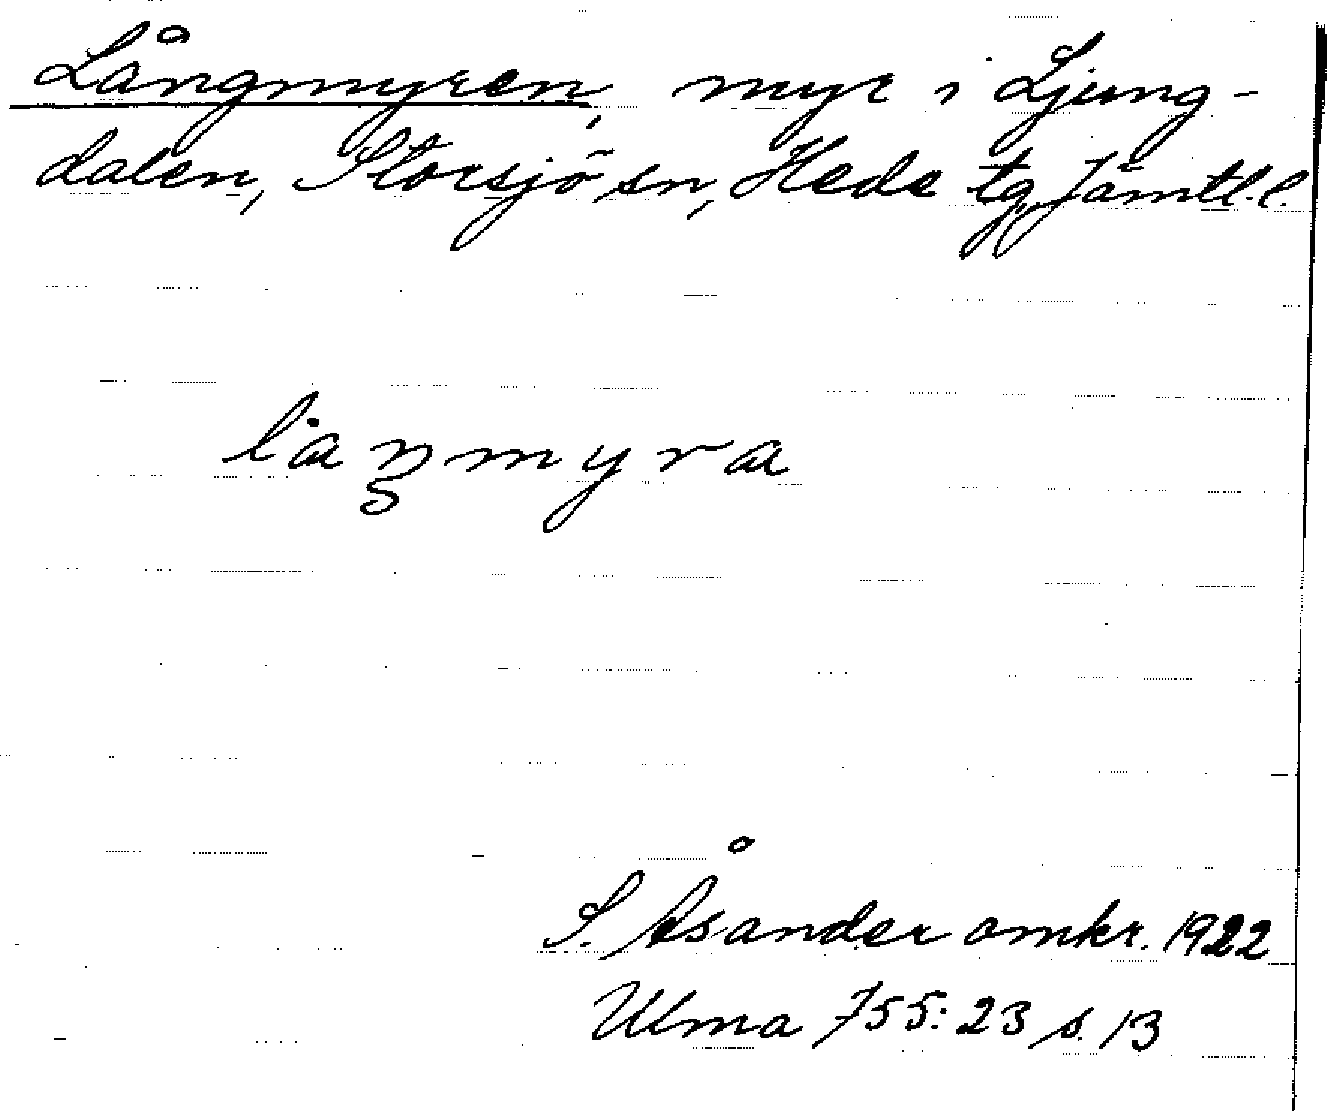 Långmyren, myr i Ljung-
dalen, Storsjö sn, Hede tg, Jämtl. l.
laŋmyra
S. Åsander omkr. 1922
Ulma 755:23 s. 13